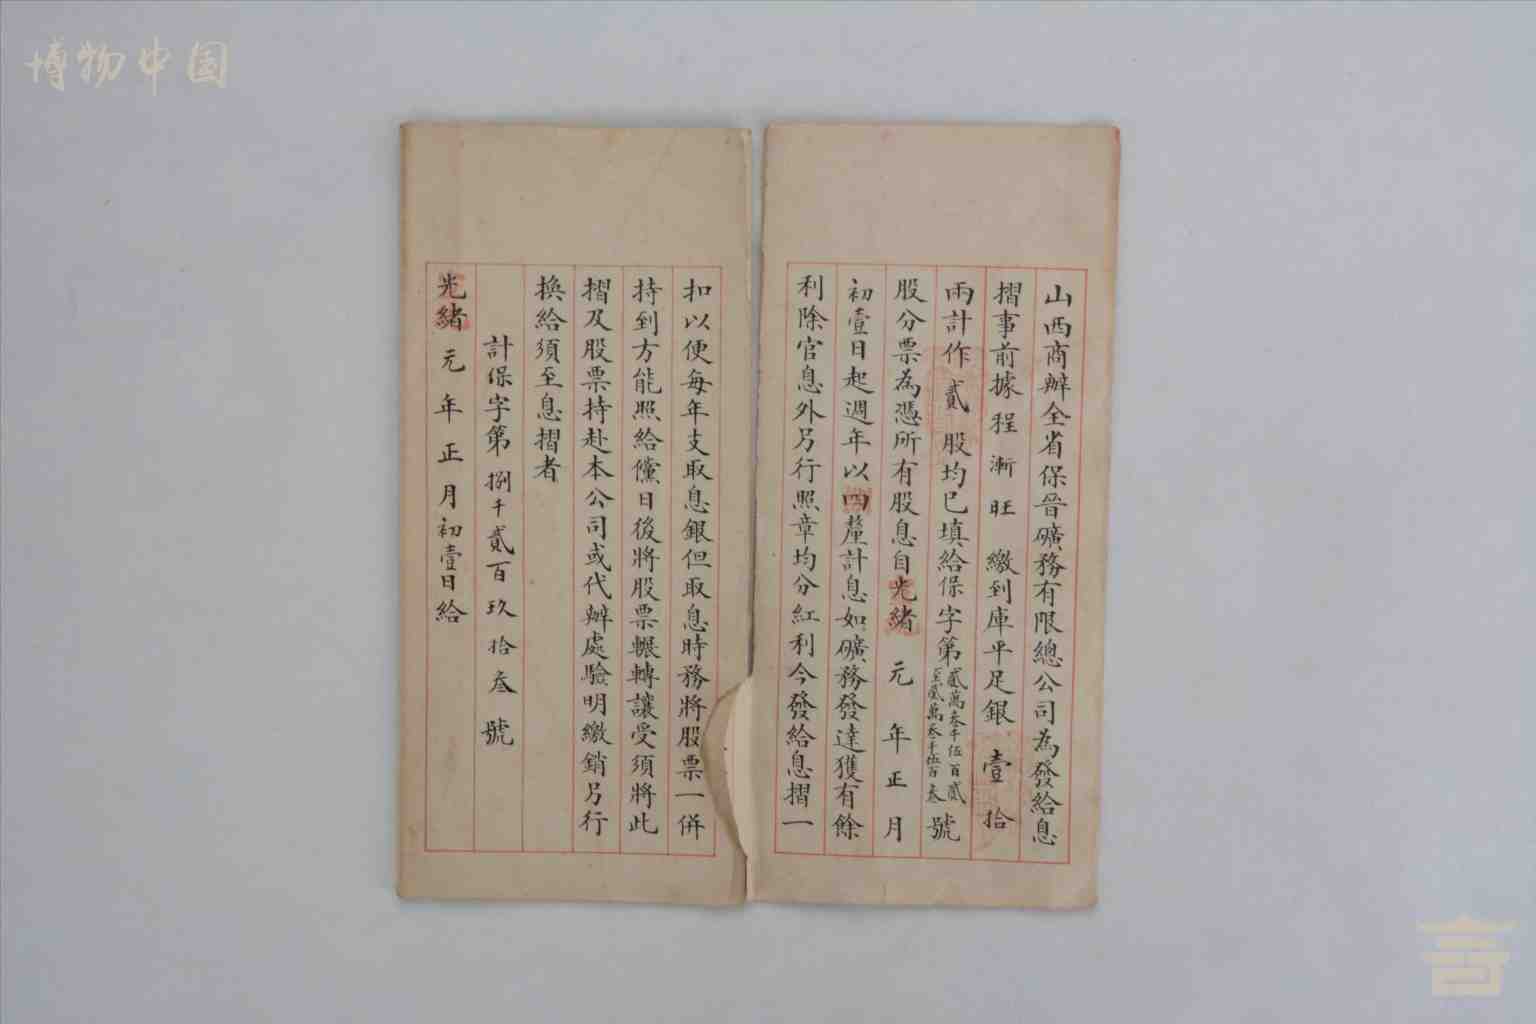 博物中国
山西商辦全省保晉礦務有限總公司為發給息
摺事前據程漸旺繳到庫平足銀壹拾
兩計作貳股均已填給保字第貳萬叁千伍百貳至貳萬叁千伍百叁號
股分票為憑所有股息自光緒元年正月
初壹日起週年以四釐計息如礦務發達獲有餘
利除官息外另行照章均分紅利今發給息摺一
扣以便每年支取息銀但取息時務將股票一併
持到方能照給儻日後將股票輾轉讓受須將此
摺及股票持赴本公司或代辦處驗明繳銷另行
換給須至息摺者
計保字第捌千貳百玖拾叁號
光緒元年正月初壹日給